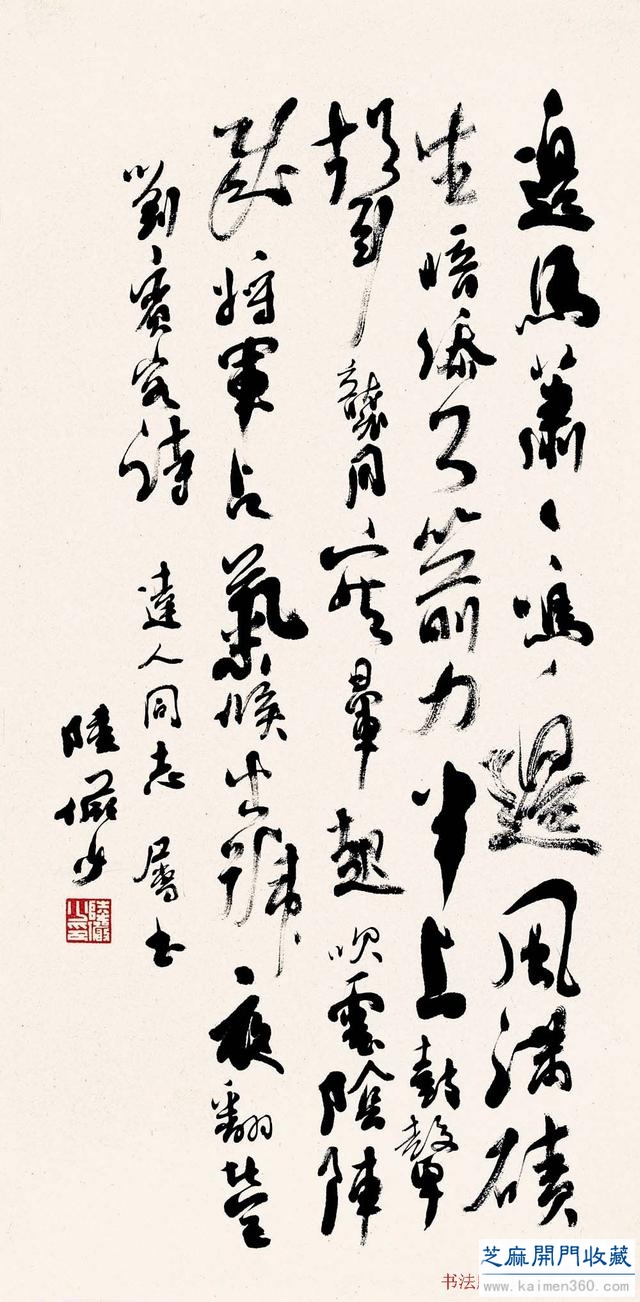 邊馬蕭〻鳴邊風滿磧
生暗添弓箭力斗上鼓鼙
聲襲月寒暈起吹雲陰陣
成將軍占氣候出號夜翻營
劉賓客詩 達人同志屬書
陸儼少
陸儼少印
书法
芝麻開門收藏
www.kaimen360.com